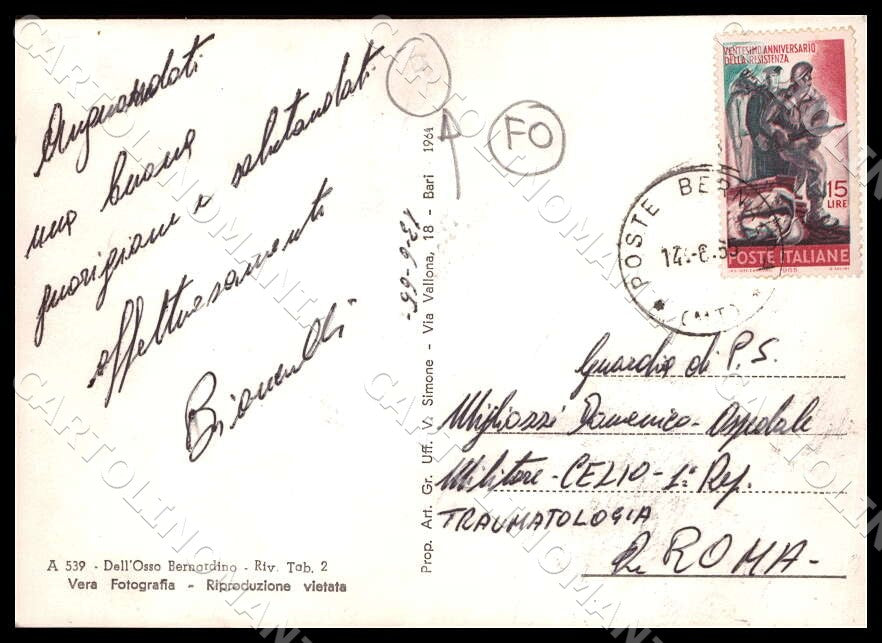 Augurandoti
una buona
guarigione e salutandoti
affettuosamente
FO
13-6-65-
VENTESIMO ANNIVERSARIO
DELLA RESISTENZA
15
LIRE
POSTE ITALIANE
1965
POSTE
(MT)
Guardia di P.S.
Migliozzi Domenico - Ospedale
Militare - CELIO - 1° Rep.
TRAUMATOLOGIA
ROMA -
A 539 - Dell'Osso Bernardino - Riv. Tab. 2
Vera Fotografia - Riproduzione vietata
Prop. Art. Gr. Uff. V. Simone - Via Vallona, 18 - Bari 1964
CARTOLINOMANI